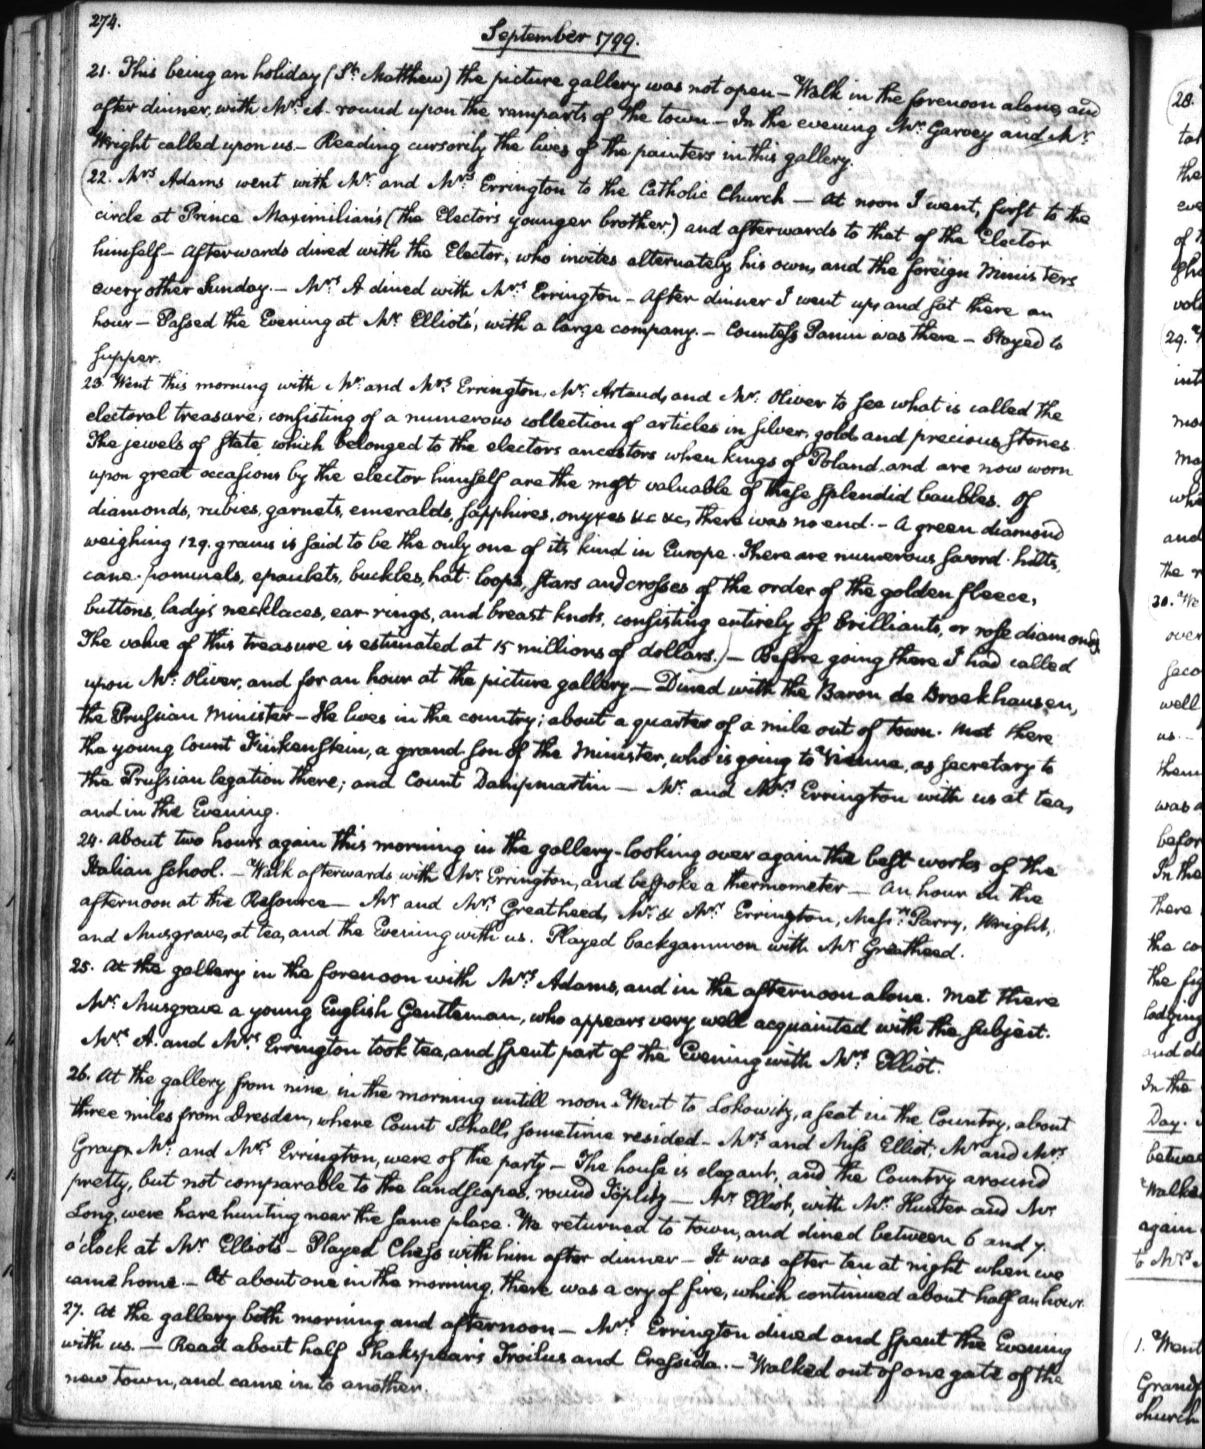 274.
September 1799.
21. This being an holiday (St. Matthew) the picture gallery was not open — Walk in the forenoon alone, and
after dinner, with Mrs. A. round upon the ramparts of the town — In the evening Mr. Garvey and Mr.
Wright called upon us — Reading cursorily the lives of the painters in this gallery.
22. Mrs. Adams went with Mr. and Mrs. Errington to the Catholic Church — At noon I went, first to the
circle at Prince Maximilian's (the Elector's younger brother) and afterwards to that of the Elector
himself — Afterwards dined with the Elector, who invites alternately his own, and the foreign Ministers
every other Sunday. — Mrs. A dined with Mrs. Errington — After dinner I went up, and sat there an
hour — Passed the Evening at Mr. Elliots', with a large company. — Countess Panin was there — Stayed to
supper.
23. Went this morning with Mr. and Mrs. Errington, Mr. Artaud, and Mr. Oliver to see what is called the
electoral treasure, consisting of a numerous collection of articles in silver, gold and precious stones.
The jewels of state, which belonged to the electors ancestors when kings of Poland, and are now worn
upon great occasions by the elector himself are the most valuable of these splendid baubles. Of
diamonds, rubies, garnets, emeralds, sapphires, onyxes &c &c, there was no end. — A green diamond
weighing 129. grains is said to be the only one of its kind in Europe. There are numerous sword-hilts,
cane-pommels, epaulets, buckles, hat-loops, stars and crosses of the order of the golden fleece,
buttons, lady's necklaces, ear-rings, and breast knots, consisting entirely of brilliants, or rose diamonds
The value of this treasure is estimated at 15 millions of dollars.) — Before going there I had called
upon Mr. Oliver, and for an hour at the picture gallery — Dined with the Baron de Brockhausen,
the Prussian Minister — He lives in the country; about a quarter of a mile out of town. Met there
the young Count Finkenstein, a grand son of the Minister, who is going to Vienna, as secretary to
the Prussian legation there; and Count Dampmartin — Mr. and Mrs. Errington with us at tea,
and in the Evening.
24. About two hours again this morning in the gallery — looking over again the best works of the
Italian school. — Walk afterwards with Mr. Errington, and bespoke a thermometer — An hour in the
afternoon at the Resource — Mr. and Mrs. Greatheed, Mr. & Mrs. Errington, Messrs. Parry, Wright,
and Musgrave, at tea, and the Evening with us. Played backgammon with Mr Greatheed.
25. At the gallery in the forenoon with Mrs. Adams, and in the afternoon alone. Met there
Mr. Musgrave a young English Gentleman, who appears very well acquainted with the subject.
Mrs. A. and Mrs. Errington took tea, and spent part of the Evening with Mrs. Elliot.
26. At the gallery from nine in the morning untill noon. Went to Lokowitz, a seat in the Country, about
three miles from Dresden, where Count Schall, sometime resided — Mrs. and Miss Elliot, Mr and Mrs.
Mr. and Mrs. Errington, were of the party — The house is elegant, and the Country around
pretty, but not comparable to the landscapes, round Töplitz — Mr. Elliot, with Mr. Hunter and Mr.
Long, were hare hunting near the same place. We returned to town, and dined between 6 and 7.
o'clock at Mr. Elliots — Played Chess with him after dinner — It was after ten at night when we
came home. — At about one in the morning, there was a cry of fire, which continued about half an hour.
27. At the gallery both morning and afternoon — Mrs. Errington dined and spent the Evening
with us. — Read about half Shakspear's Troilus and Cressida. — Walked out of one gate of the
new town, and came in to another.
28.
29.
30. We
over
well
us.
them
was a
befor
In the
there
the co
the fig
lodging
and de
In the
Day.
betwee
Walke
again
to Mrs.
1. Went
Grand
church